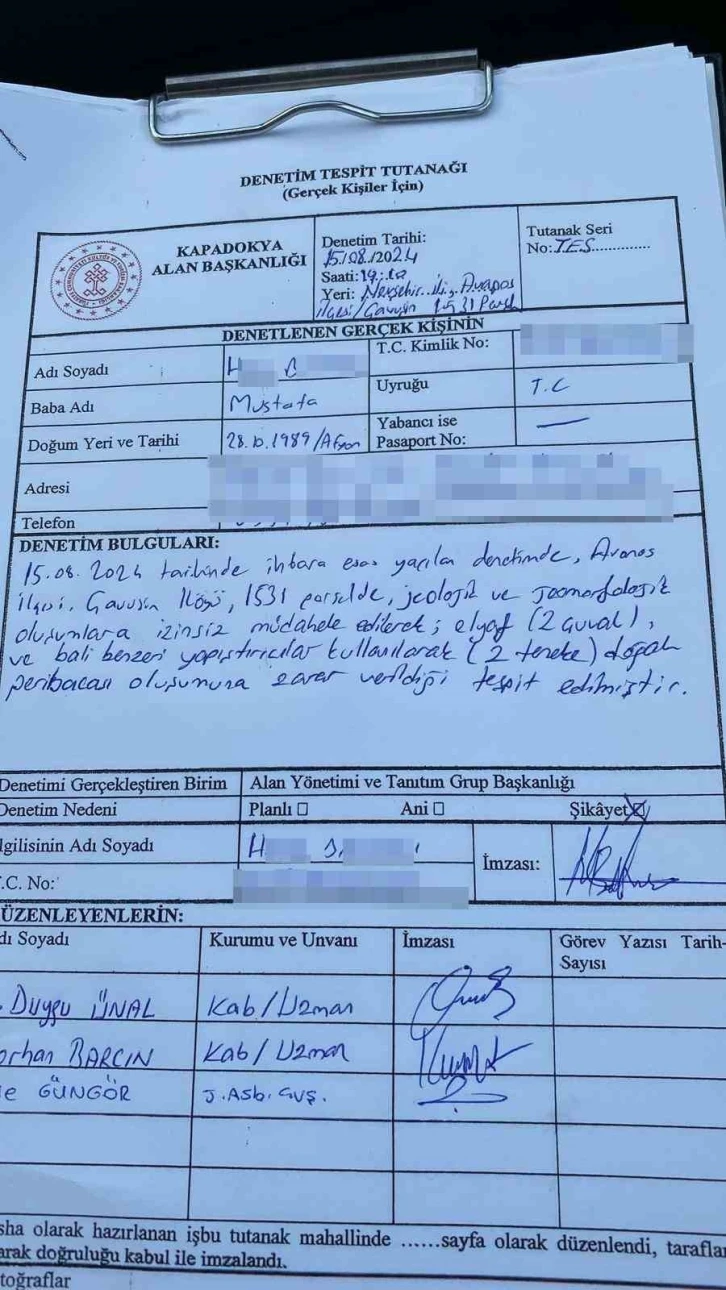 DENETİM TESPİT TUTANAĞI
(Gerçek Kişiler İçin)
KAPADOKYA
ALAN BAŞKANLIĞI
Denetim Tarihi:
15/08/2024
Saati:19:10
Yeri: Nevşehir ili, Avanos
ilçesi/Çavuşin 1531 Parsel
Tutanak Seri
No:TES.............
DENETLENEN GERÇEK KİŞİNİN
Adı Soyadı
H
T.C. Kimlik No:
Baba Adı
Mustafa
Uyruğu
T.C
Doğum Yeri ve Tarihi
28.10.1989/Afyon
Yabancı ise
Pasaport No:
—
Adresi
Telefon
DENETİM BULGULARI:
15.08.2024 tarihinde ihbara esas yapılan denetimde, Avanos
ilçesi, Çavuşin Köyü, 1531 parselde, jeolojik ve jeomorfolojik
oluşumlara izinsiz müdahele edilerek; elyaf (2 çuval),
ve bali benzeri yapıştırıcılar kullanılarak (2 teneke) doğal
peribacası oluşumuna zarar verildiği tespit edilmiştir.
Denetimi Gerçekleştiren Birim
Alan Yönetimi ve Tanıtım Grup Başkanlığı
Denetim Nedeni
Planlı ☐
Ani ☐
Şikâyet ☒
lgilisinin Adı Soyadı
H
İmzası:
.C. No:
ÜZENLEYENLERİN:
dı Soyadı
Kurumu ve Unvanı
İmzası
Görev Yazısı Tarih-
Sayısı
Duygu ÜNAL
Kab/Uzman
orhan BARÇIN
Kab/Uzman
e GÜNGÖR
J.Asb.Çvş.
sha olarak hazırlanan işbu tutanak mahallinde ......sayfa olarak düzenlendi, tarafla
arak doğruluğu kabul ile imzalandı.
toğraflar